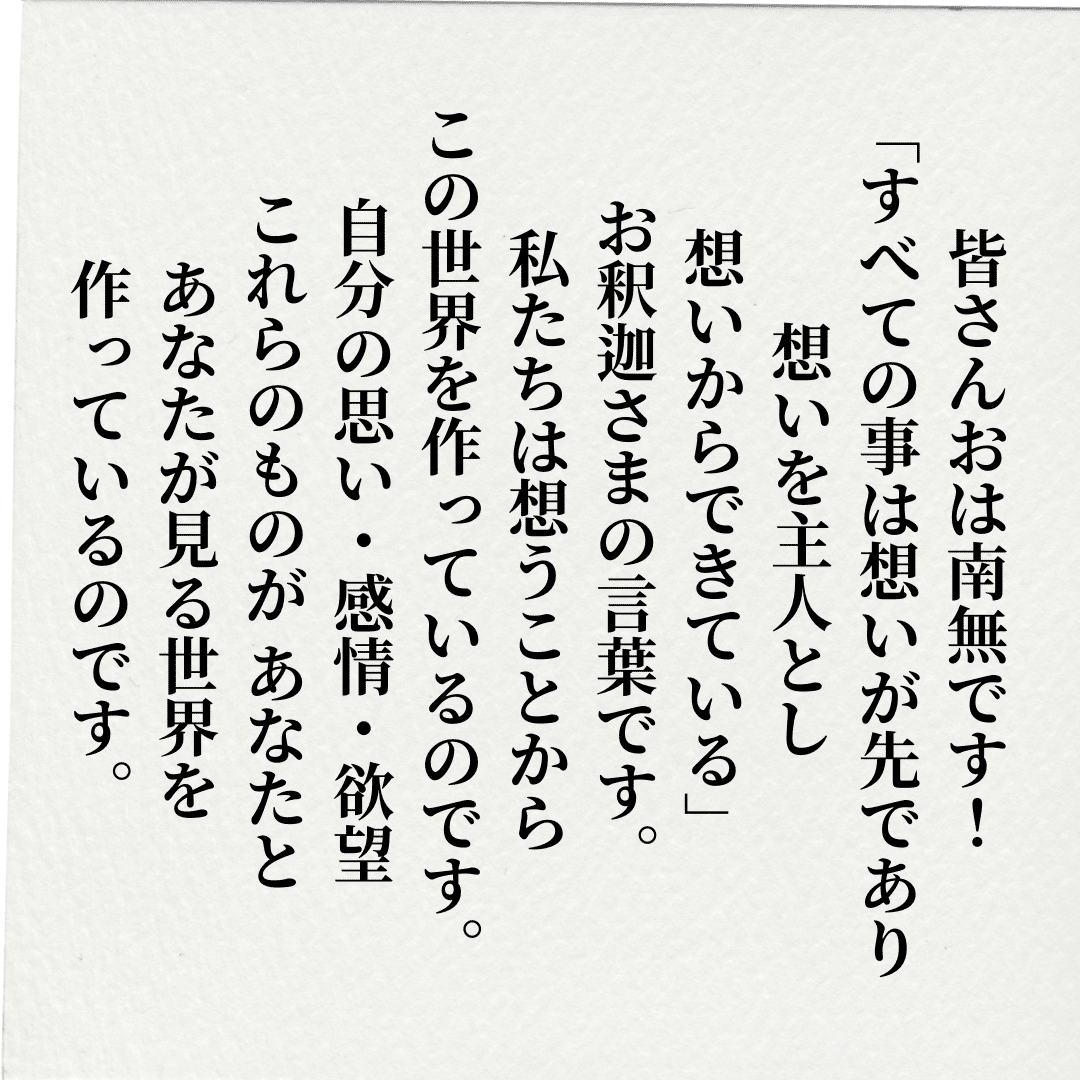 皆さんおは南無です！
「すべての事は想いが先であり
想いを主人とし
想いからできている」
お釈迦さまの言葉です。
私たちは想うことから
この世界を作っているのです。
自分の思い・感情・欲望
これらのものが あなたと
あなたが見る世界を
作っているのです。